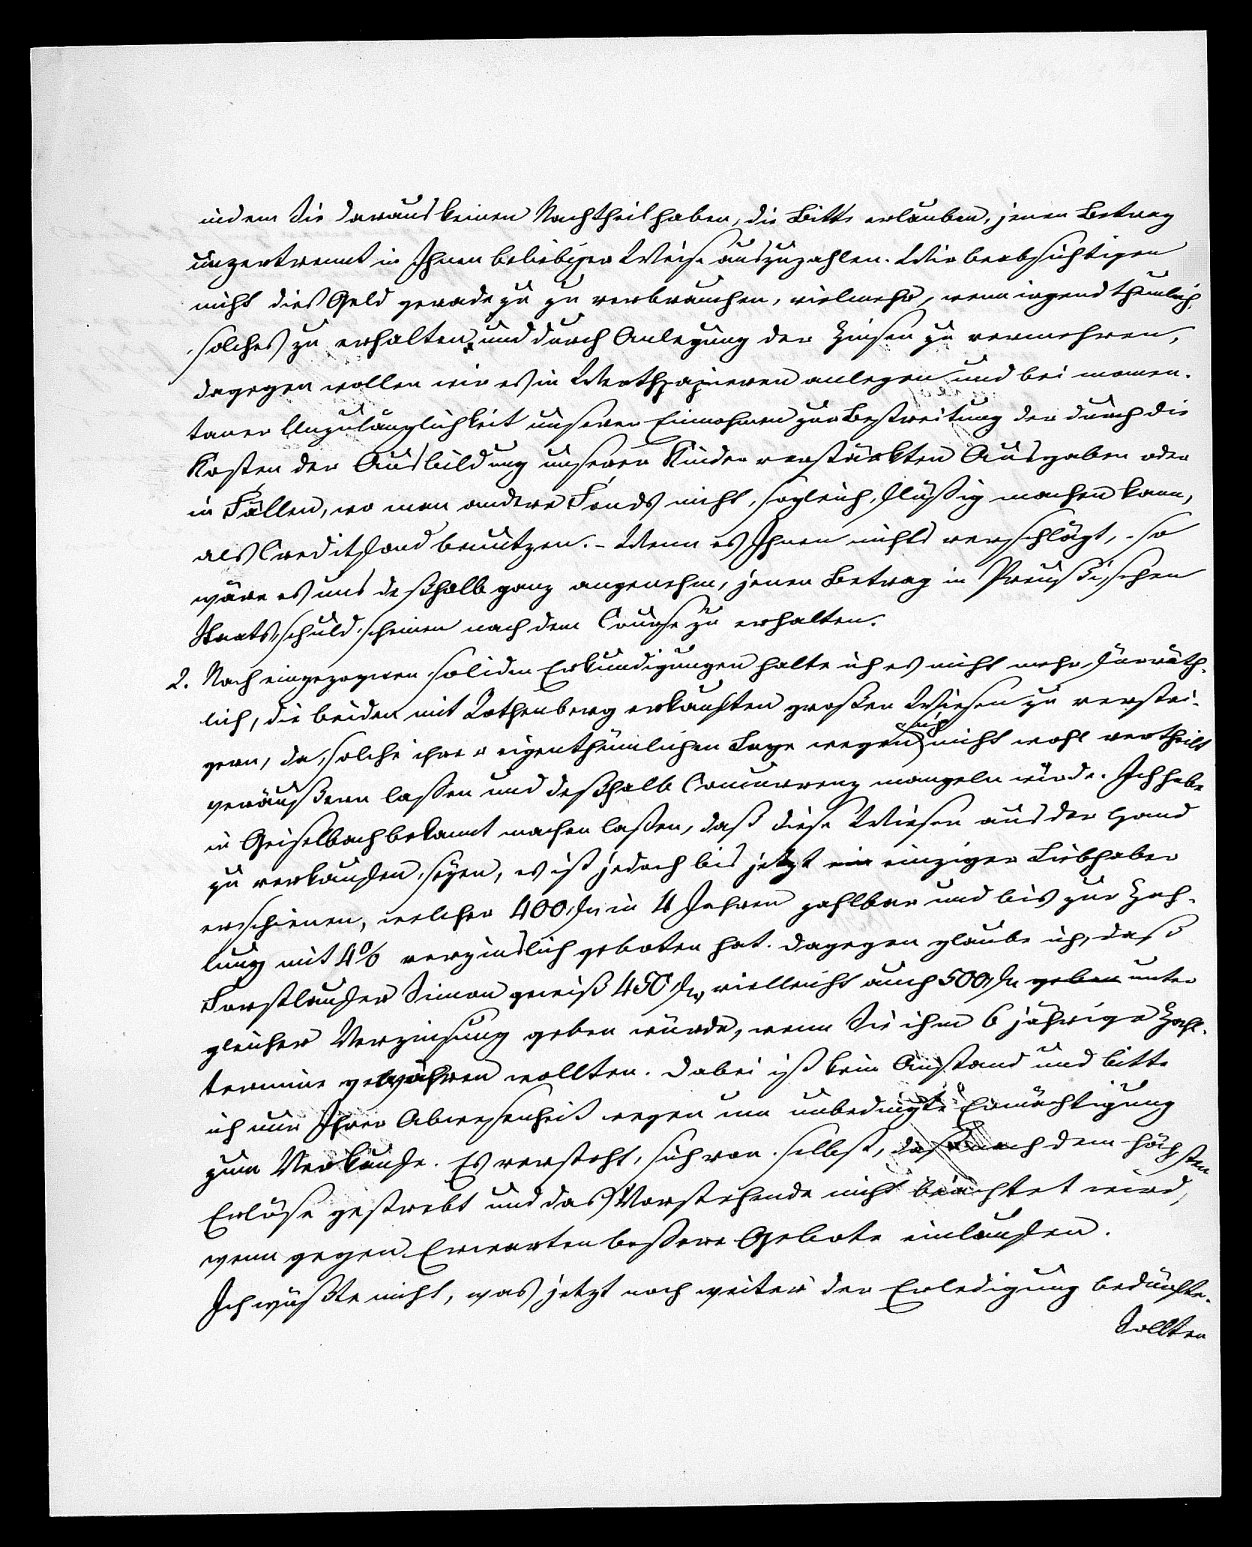 indem Sie daraus keinen Nachtheil haben, die Bitte erlauben, jenen Betrag
unzertrennt in Ihnen beliebiger Weise auszuzahlen. Wir beabsichtigen
nicht dies Geld geradezu zu verbrauchen, vielmehr, wenn irgend thunlich
solches zu erhalten und durch Anlegung der Zinsen zu vermehren,
dagegen wollen wir es in Werthpapieren anlegen und bei momen-
taner Unzulänglichkeit unserer Einnahmen zur Bestreitung der durch die
Kosten der Ausbildung unserer Kinder verstärkten Ausgaben oder
in Fällen, wo man andere Fonds nicht sogleich flüßig machen kann,
als Creditfond benützen. - Wenn es Ihnen nichts verschlägt, - so
wäre es uns deßhalb ganz angenehm, jenen Betrag in Preußischen
Staats-schuld-scheinen nach dem Course zu erhalten.
2. Nach eingezogenen soliden Erkundigungen halte ich es nicht mehr für räth-
lich, die beiden mit Rothenberg erkauften großen Wiesen zu verstei-
gern, da solche ihrer eigenthümlichen Lage wegen sich nicht wohl vertheilt
veräußern laßen und deßhalb Concurrenz mangeln würde. Ich habe
in Geiselbach bekannt machen laßen, daß diese Wiesen aus der Hand
zu verkaufen seyen, es ist jedoch bis jetzt ein einziger Liebhaber
erschienen, welcher 400 fl. in 4 Jahren zahlbar und bis zur Zah-
lung mit 4% verzinslich geboten hat. Dagegen glaube ich, daß
Forstläufer Simon gewiß 450 fl., vielleicht auch 500 fl. geben unter
gleicher Verzinsung geben würde, wenn Sie ihm 6 jährige Zahl-
termine gewähren wollten. Dabei ist kein Anstand und bitte
ich nur Ihrer Abwesenheit wegen um unbedingte Ermächtigung
zum Verkaufe. Es versteht sich von selbst, daß nach dem höchsten
Erlöse gestrebt und das Vorstehende nicht beachtet wird,
wenn gegen Erwarten beßere Gebote einlaufen.
Ich wüßte nicht, was jetzt noch weiter der Erledigung bedürfte.
Sollten